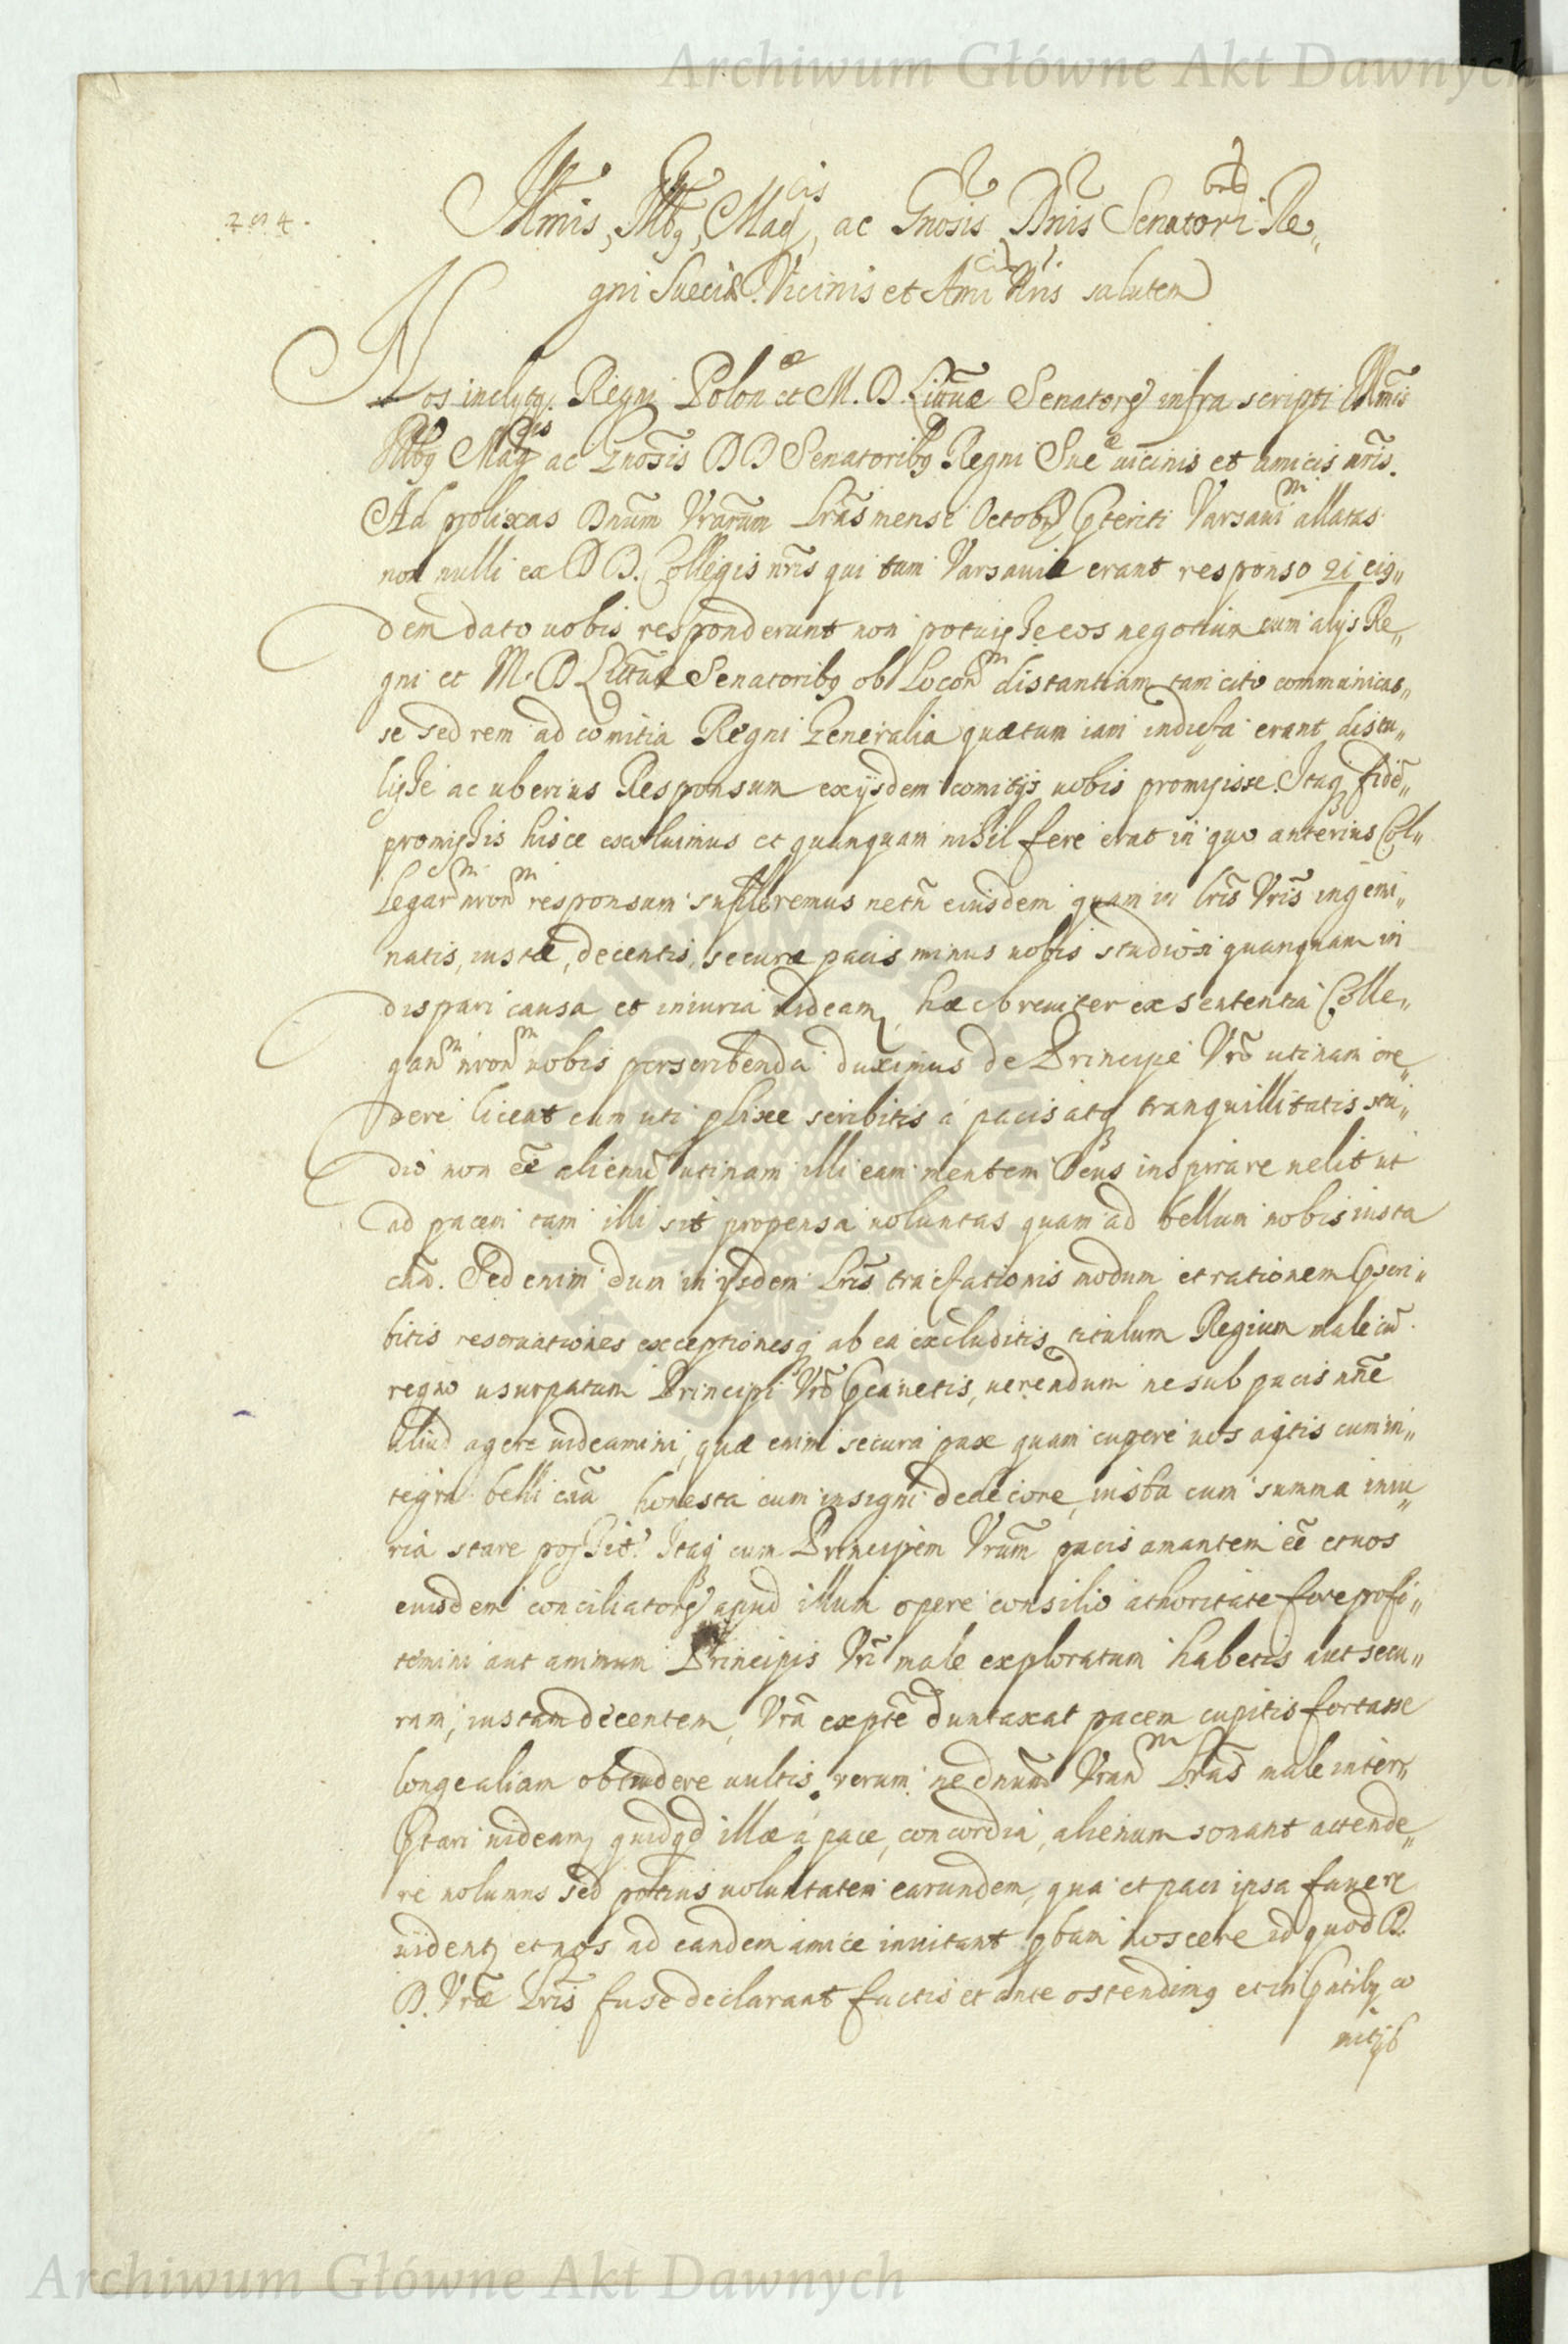 Archiwum Główne Akt Dawnych
.294.
Illmis, Illbq, Magcis, ac Gnosis Dnis Senatoribq Re„
gni Sueciæ Vicinis et Amicis Nris salutem
Nos inclyty Regni Polonæ et M. D. Lituæ Senatores infra scripti Illmis
Illbq Magcis ac Gnosis DD Senatoribq Regni Sueæ uicinis et amicis nris.
Ad prolixas Dnum Vrarum Lras mense Octobr pteriti Varsauiam allatas
non nulli ex DD. Collegis nris qui tum Varsauiæ erant responso 21 eiq„
dem dato uobis responderunt non potuisse eos negotium cum alijs Re„
gni et M. D Lituæ Senatoribq ob Locorm distantiam tam cito communicas„
se sed rem ad comitia Regni Generalia quæ tum iam indicta erant distu„
lisse ac uberius Responsum ex ijsdem comitijs uobis promisisse. Itaq fide
promissis hisce exoluimus et quanquam nihil fere erat in quo anterius Col„
legarm nrorm responsum suppleremus ne tn eiusdem quam in lris Vris ingemi„
natis, iustæ, decentis, securæ pacis minus uobis studiosi quanquam in
dispari causa et iniuria uideamr, hæc breuiter ex sententia Colle„
garm nrorm uobis perscribenda duximus de Principe Vro utinam cre„
dere liceat eum uti plixe scribitis a pacis atq tranquillitatis stu„
dio non ee alienu utinam illi eam mentem Deus inspirare uelit ut
ad pacem tam illi sit propensa uoluntas quam ad bellum nobis iusta
cau. Sed enim dum in ijsdem Lris tractationis modum et rationem pscri„
bitis reseruationes exceptionesq ab ea excluditis titulum Regium male cu
regno usurpatum Principi Vro pcauetis, uerendum ne sub pacis nne
aliud agere uideamini, quæ enim secura pax quam cupere uos agitis cum in„
tegra belli cau honesta cum insigni dedecore, iusta cum summa iniu„
ria stare possit? Itaq cum Principem Vrum pacis amantem ee et uos
eiusdem conciliatores apud illum opere consilio athoritate fore profi„
temini aut animum Principis Vri male exploratum habetis aut secu„
ram, iustam decentem, Vra ex pte duntaxat pacem cupitis fortasse
longe aliam obtrudere uultis, verum ne dnum Vrarm Lras male inter„
ptari uideamr quidqd illæ a pace, concordia, alienum sonant attende„
re nolumus sed potius uoluntatem earundem, qua et paci ipsa fauere
uidentr et nos ad eandem amice inuitant pbam noscere id quod D.
D. Vræ Lris fuse declarant factis et ante ostendimq et in pntibq co
mitijs
Archiwum Główne Akt Dawnych